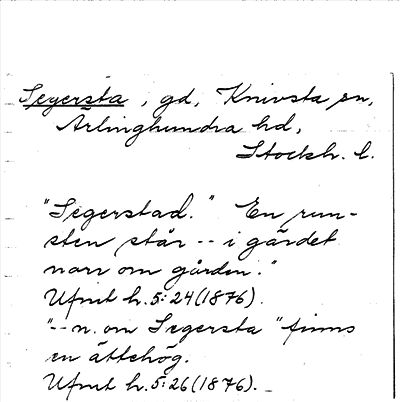 Segersta, gd, Knivsta sn,
Ärlinghundra hd,
Stockh. l.
"Segerstad." En run-
sten står -- i gärdet
norr om gården."
Ufmt h. 5:24 (1876).
"-- n. om Segersta" finns
en ättehög.
Ufmt h. 5:26 (1876).